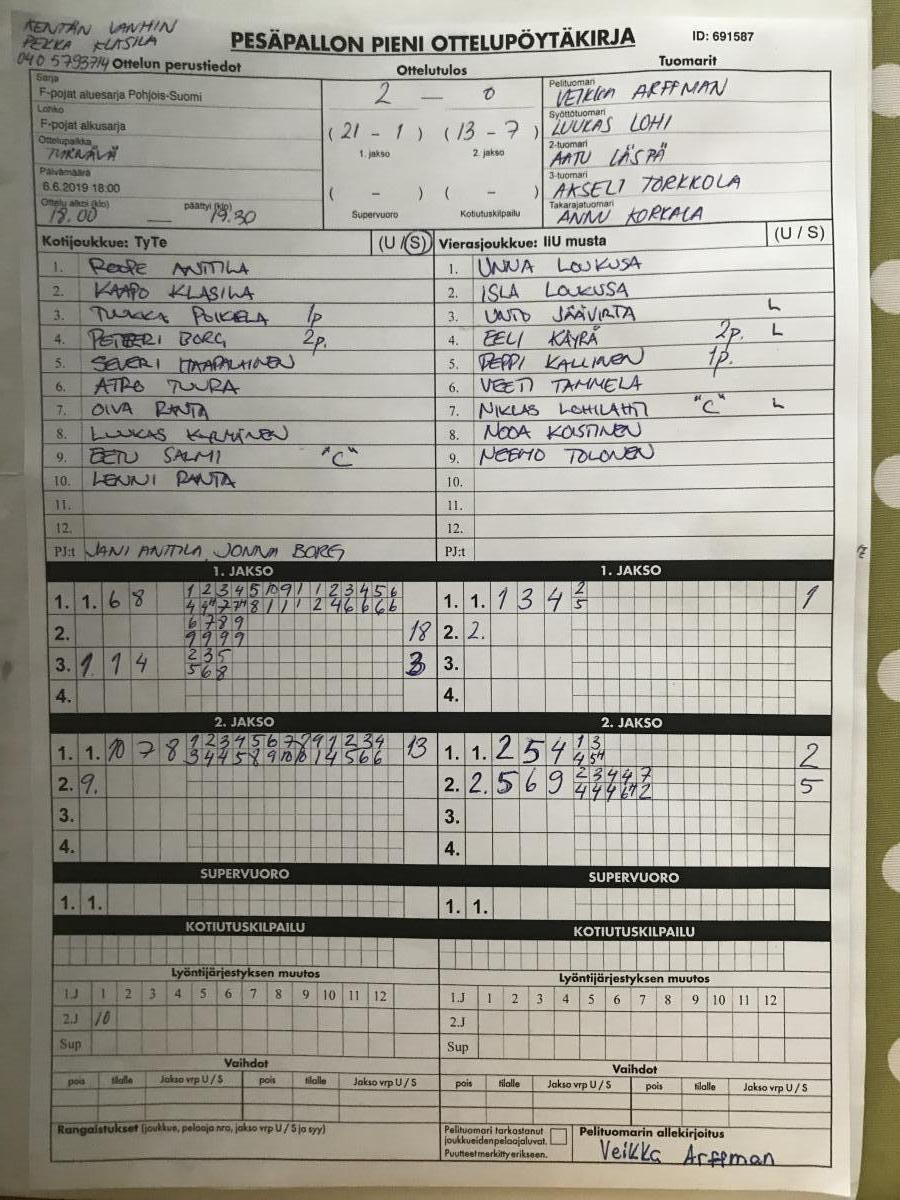 KENTÄN VANHIN
PEKKA KLASILA
040 5793714
PESÄPALLON PIENI OTTELUPÖYTÄKIRJA
ID: 691587
Ottelun perustiedot
Ottelutulos
Tuomarit
Sarja
F-pojat aluesarja Pohjois-Suomi
Lohko
F-pojat alkusarja
Ottelupaikka
Päivämäärä
6.6.2019 18:00
Ottelu alkoi (klo) päättyi (klo)
18.00 — 19.30
2 — 0
( 21 - 1 ) ( 13 - 7 )
1. jakso 2. jakso
( - ) ( - )
Supervuoro Kotiutuskilpailu
Pelituomari
VEIKKA ARFFMAN
Syöttötuomari
LUUKAS LOHI
2-tuomari
AATU LÄSPÄ
3-tuomari
AKSELI TORKKOLA
Takarajatuomari
ANNU KORKALA
Kotijoukkue: TyTe (U / S)
1. ROOPE ANTTILA
2. KAAPO KLASILA
3. TUUKKA POIKELA 1p
4. PETTERI BORG 2p.
5. SEVERI HAAPALAINEN
6. ATRO TUURA
7. OIVA RANTA
8. LUUKAS
9. EETU SALMI "C"
10. LENNI RANTA
11.
12.
PJ:t JANI ANTTILA, JONNA BORG
Vierasjoukkue: IIU musta (U / S)
1. UNNA LOUKUSA
2. ISLA LOUKUSA
3. UNTO JÄÄVIRTA L
4. EELI KÄYRÄ 2p. L
5. PEPPI KALLINEN 1p.
6. VEETI TAMMELA
7. NIKLAS LOHILAHTI "C" L
8. NOOA KOISTINEN
9. NEEMO TOLONEN
10.
11.
12.
PJ:t
1. JAKSO
1. 1. 6 8 1 2 3 4 5 10 9 1 1 2 3 4 5 6
2. 6 7 8 9 18
9 9 9 9
3. 1 1 4 2 3 5 3
5 6 8
4.
1. JAKSO
1. 1. 1 3 4 2 1
5
2. 2.
3.
4.
2. JAKSO
1. 1. 10 7 8 1 2 3 4 5 6 7 8 9 1 2 3 4 13
3 4 4 5 8 9 10 10 1 4 5 6 6
2. 9.
3.
4.
2. JAKSO
1. 1. 2 5 4 1 3 2
2. 2. 5 6 9 2 3 4 4 7 5
3.
4.
SUPERVUORO
1. 1.
SUPERVUORO
1. 1.
KOTIUTUSKILPAILU
KOTIUTUSKILPAILU
Lyöntijärjestyksen muutos
1.J 1 2 3 4 5 6 7 8 9 10 11 12
2.J 10
Sup
Lyöntijärjestyksen muutos
1.J 1 2 3 4 5 6 7 8 9 10 11 12
2.J
Sup
Vaihdot
pois tilalle Jakso vrp U / S pois tilalle Jakso vrp U / S
Vaihdot
pois tilalle Jakso vrp U / S pois tilalle Jakso vrp U / S
Rangaistukset (joukkue, pelaaja nro, jakso vrp U / S ja syy)
Pelituomari tarkastanut
joukkueiden pelaajaluvat.
Puutteet merkitty erikseen.
Pelituomarin allekirjoitus
Veikka Arffman